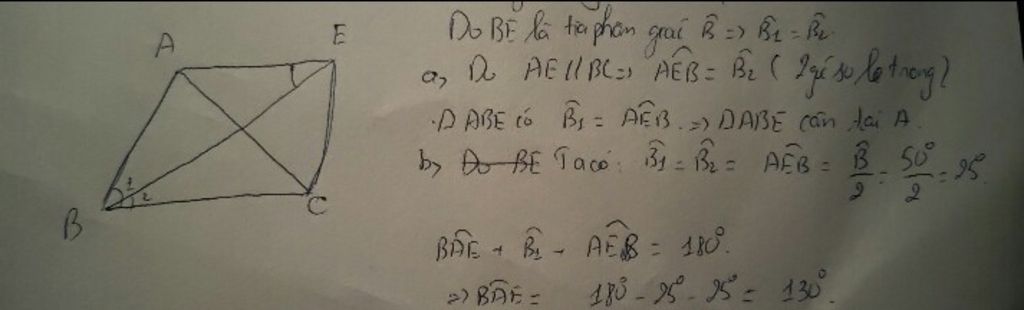 A
E
B
C
1
2
Do BE là tia phân giác B̂ => B̂₁ = B̂₂
a, Do AE // BC => AÊB = B̂₂ ( 2 góc so le trong)
Δ ABE có B̂₁ = AÊB => Δ ABE cân tại A
b, Do BE Ta có: B̂₁ = B̂₂ = AÊB = B̂/2 = 50°/2 = 25°
BÂE + B̂₁ + AÊB = 180°.
=> BÂE = 180° - 25° - 25° = 130°.